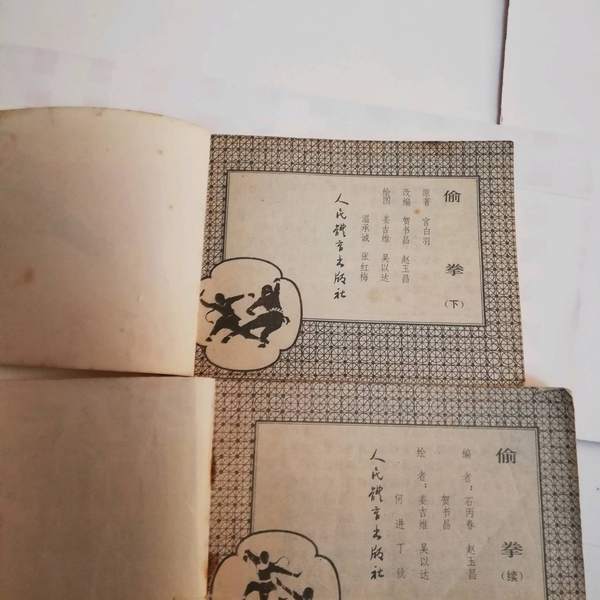 偷拳(下)
原著 宫白羽
改编 贺书昌 赵玉昌
绘图 姜吉维 吴以达
温承诚 张红梅
人民体育出版社
偷拳(续)
编者:石丙春 赵玉昌
贺书昌
绘者:姜吉维 吴以达
何进 丁
人民体育出版社